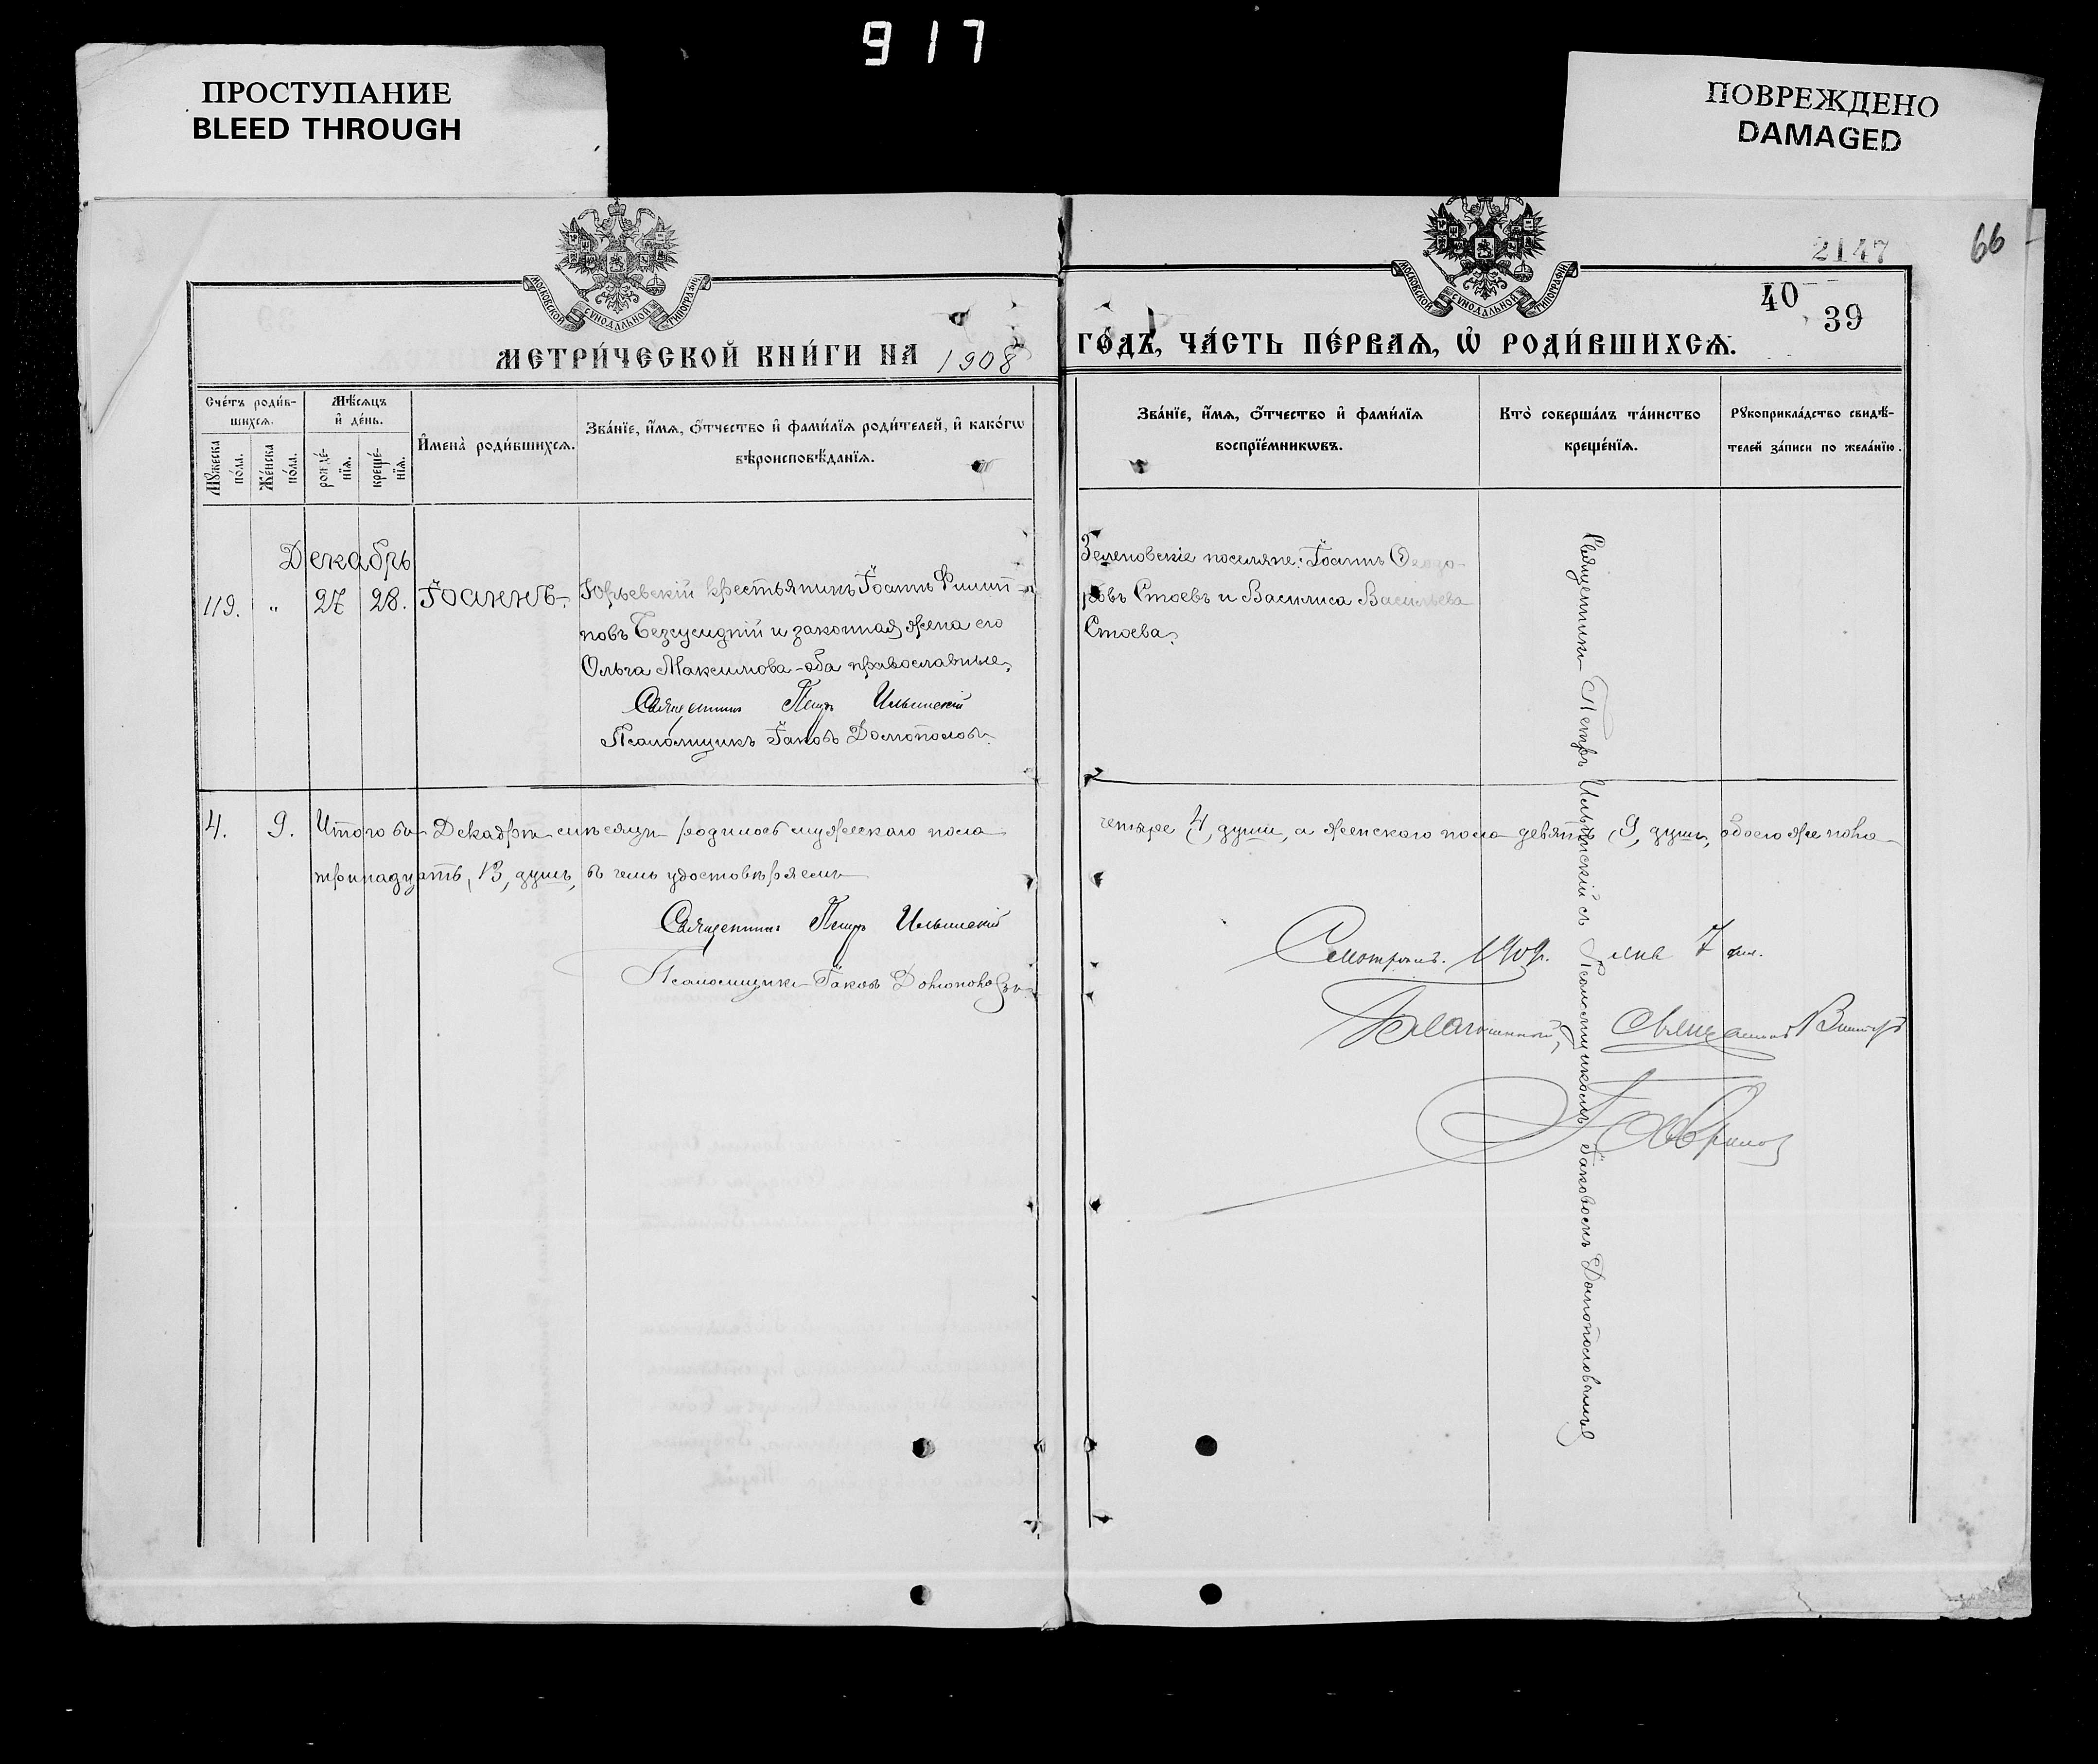 917
ПРОСТУПАНИЕ
BLEED THROUGH
ПОВРЕЖДЕНО
DAMAGED
2147
66
40
39
МОСКОВСКОЙ СУНОДАЛЬНОЙ ТИПОГРАФІИ
МОСКОВСКОЙ СУНОДАЛЬНОЙ ТИПОГРАФІИ
МЕТРИ́ЧЕСКОЙ КНИ́ГИ НА 1908 ГО́ДЪ, ЧА́СТЬ ПЕ́РВАѦ, Ѡ҆ РОДИ́ВШИХСѦ.
Сче́тъ роди́в-
шихсѧ.
Мꙋ́жеска по́ла.
Же́нска по́ла.
Мѣ́сѧцъ
и҆ де́нь.
рожде́-
нїѧ.
креще́-
нїѧ.
И҆мена̀ роди́вшихсѧ.
Зва́нїе, и҆́мѧ, ѻ҆́тчество и҆ фами́лїѧ роди́телей, и҆ како́гѡ
вѣроисповѣ́данїѧ.
Зва́нїе, и҆́мѧ, ѻ҆́тчество и҆ фами́лїѧ
воспрїе́мникѡвъ.
Кто̀ соверша́лъ та́инство
креще́нїѧ.
Рꙋкоприкла́дство свидѣ́-
телей за́писи по жела́нїю.
Декабрь
119. „ 27 28. Іоаннъ.
Юрьевскій крестьянинъ Іоаннъ Филип-
повъ Безсусидній и законная жена его
Ольга Максимова - оба православные.
Священникъ Петръ Ильинскій
Псаломщикъ Іаковъ Домополовъ
Зеленовскіе поселяне: Іоаннъ Ѳеодо-
ровъ Стоевъ и Василиса Васильева
Стоева.
Священникъ Петръ Ильинскій съ Псаломщикомъ Іаковомъ Домопоповымъ
4. 9. Итого въ Декабрѣ мѣсяцѣ родилось мужескаго пола четыре 4, души, а женскаго пола девять, 9, душъ, обоего же пола
тринадцать, 13, душъ, въ чемъ удостовѣряемъ
Священникъ Петръ Ильинскій
Псаломщикъ Іаковъ
Смотрѣлъ. 1909г. 7 дня.
Благочинный, Священникъ Викторъ
Гавриловъ